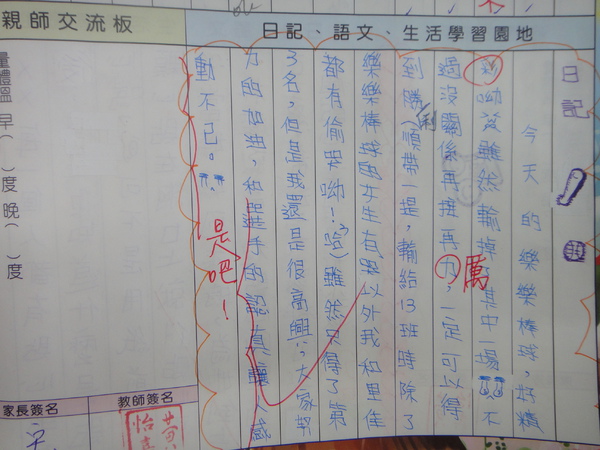 日記、語文、生活學習園地
親師交流板
日記
今天的樂樂棒球,好精
彩呦!雖然輸掉了其中一場 不
過沒關係再接再力,一定可以得
厲
到勝利(順帶一提,輸給13班時除了
樂樂棒球的女生有哭以外我和
都有偷哭呦!哈)雖然只得了第
3名,但是我還是很高興!!,大家努
力的加油,和選手的認真讓人感
動不已。
是吧!
量體溫 早( )度 晚( )度
家長簽名
教師簽名